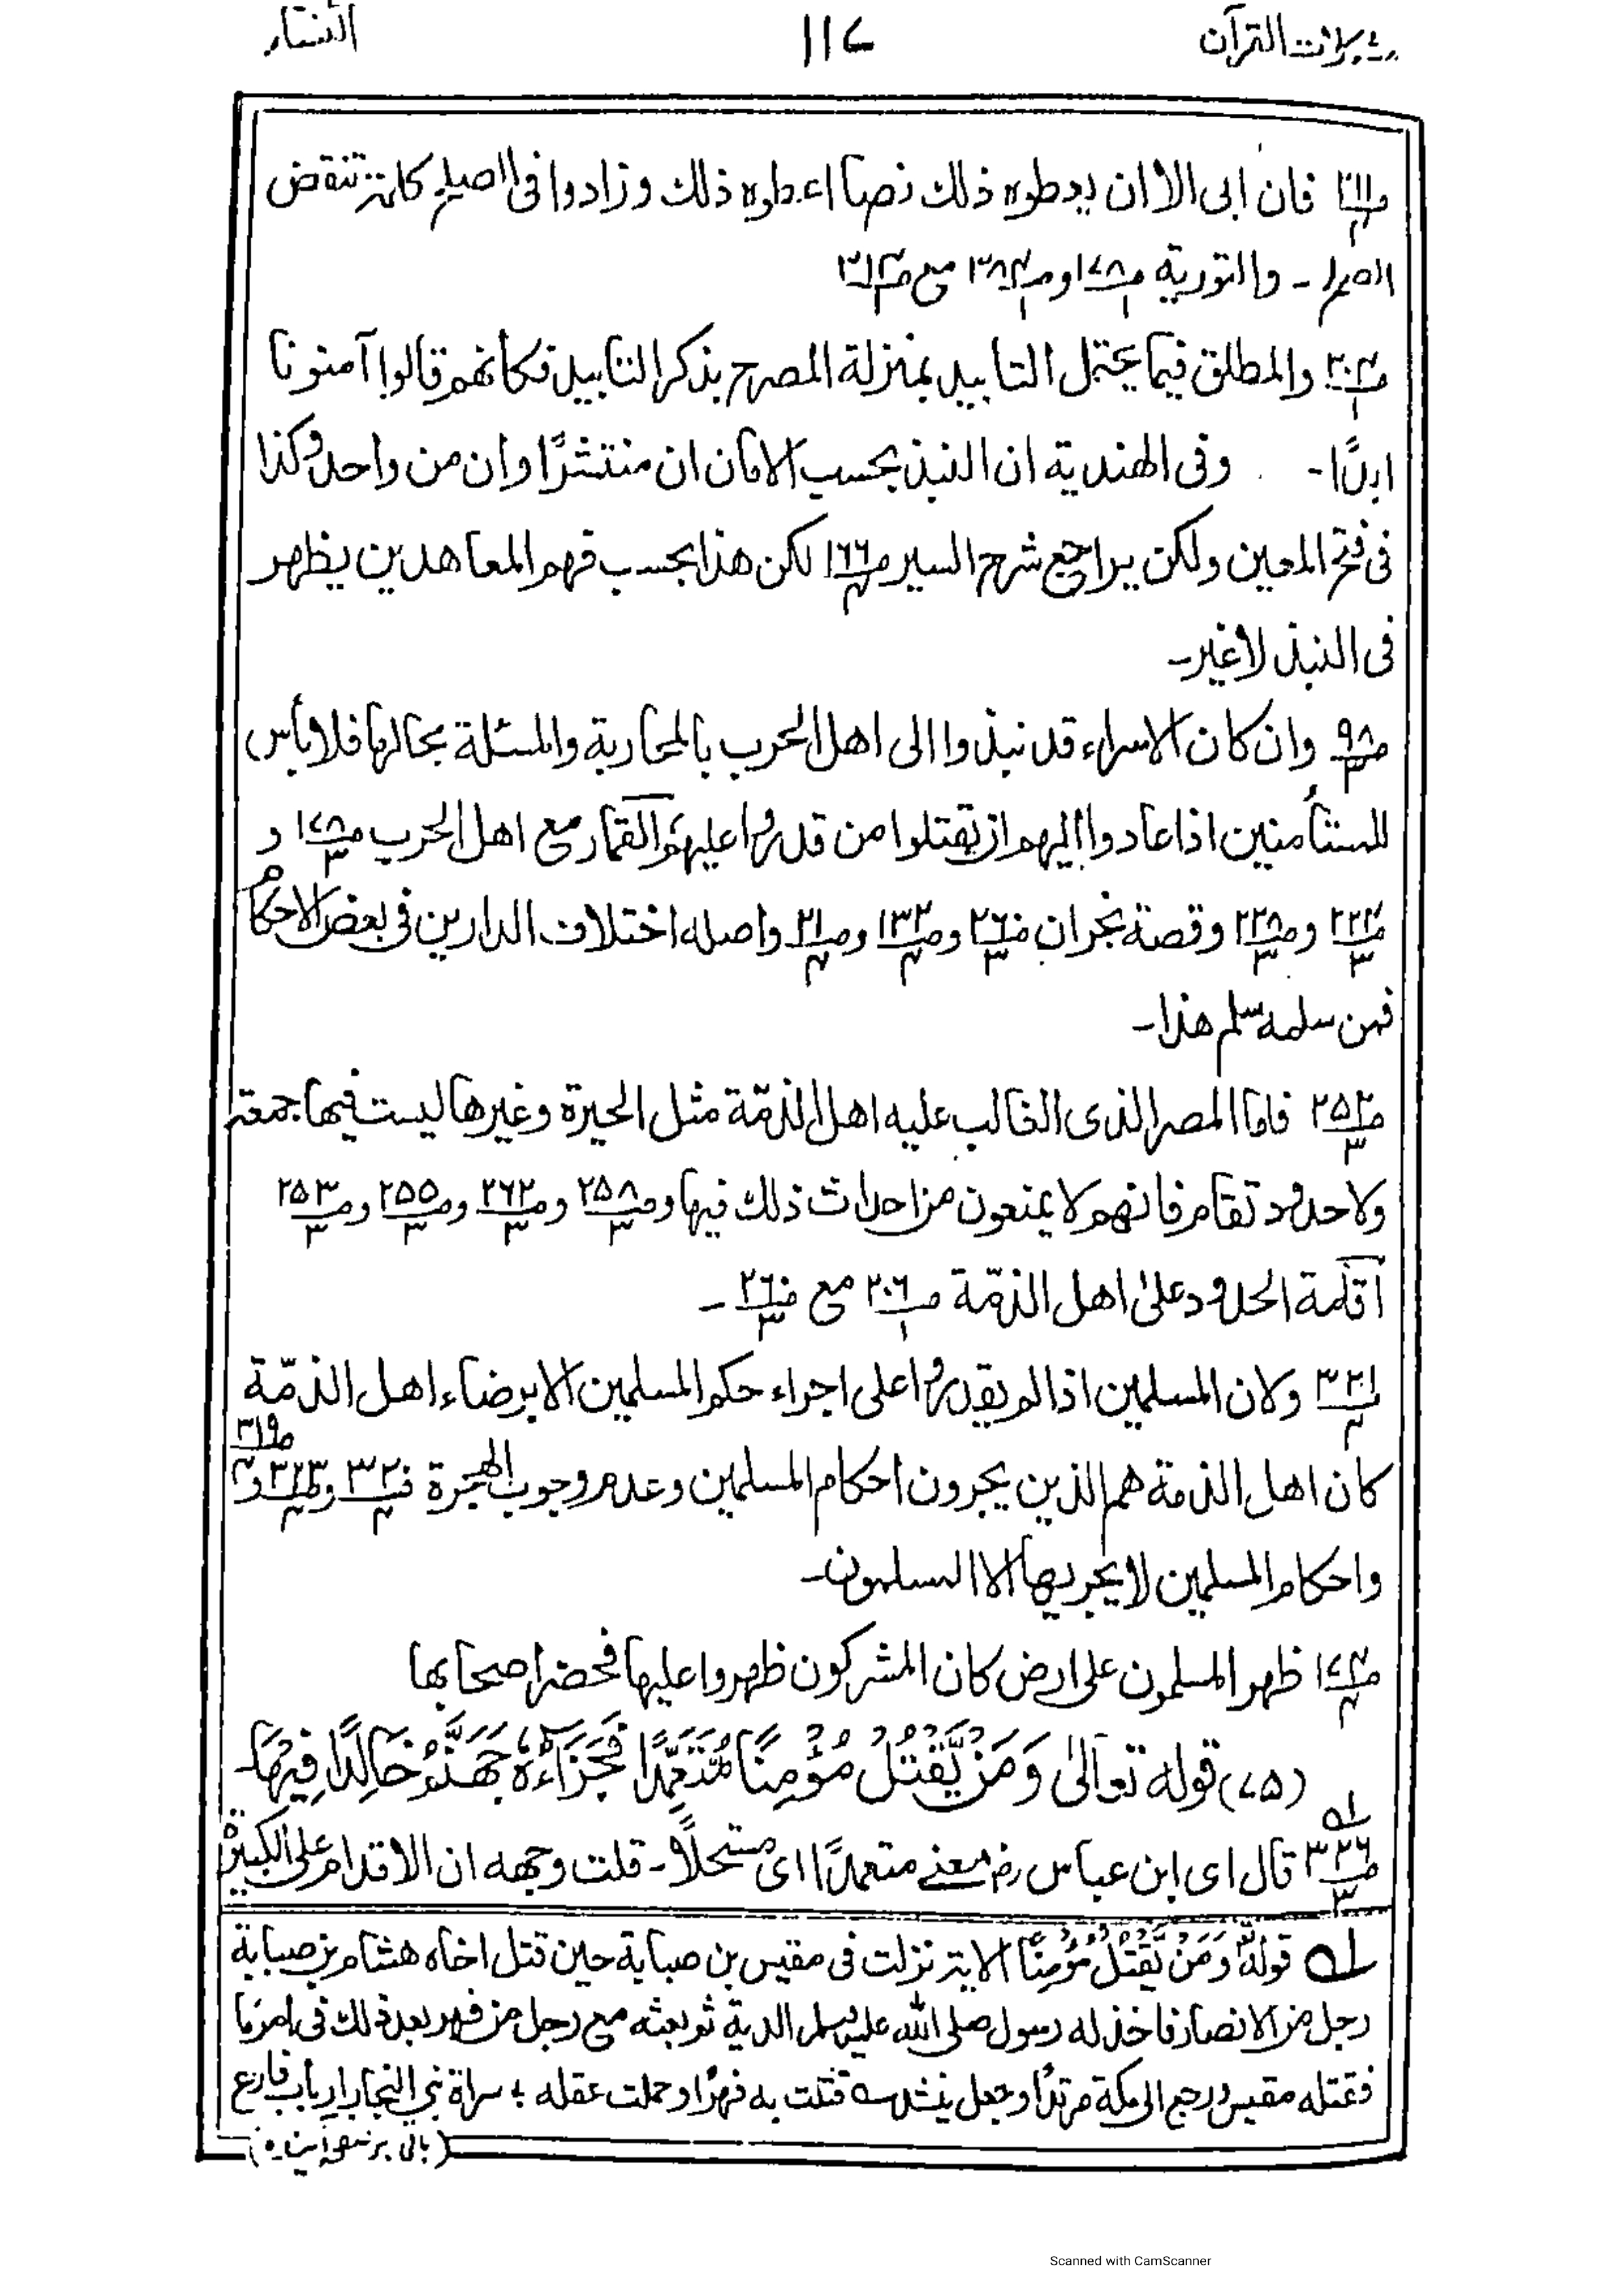 القرآن ١١٧ النساء
فان ابى الا ان يعطوه ذلك نصا اعطوه ذلك وزادوا فى الصلح كلمة تنقض
الصلح - والتورية ص١٧٨/١ و مع
والمطلق فيما يحتمل التابيد بمنزلة المصرح بذكر التابيد فكأنهم قالوا آمنونا
ابدًا - وفى الهندية ان النبذ بحسب الامان ان منتشرًا وان من واحد وكذا
فى فتح المعين ولكن يراجع شرح السير ص١٦٦/٤ لكن هذا بحسب فهم المعاهدين يظهر
فى النبذ لا غير -
ص٩٨/٣ وان كان الاسراء قد نبذوا الى اهل الحرب بالمحاربة والمسئلة بحالها فلا بأس
للمستأمنين اذا عادوا اليهم ان يقتلوا من قدروا عليه والقمار مع اهل الحرب ص١٧٨/٣ و
ص٢٢٣/٣ و ص٢٢٨/٣ وقصة نجران ص٢٦٦/٣ و ص١٣٣/٤ و ص٣١/٤ واصله اختلاف الدارين فى بعض الاحكام
فمن سلمه سلم هذا -
ص٢٥٢/٣ فاما المصر الذى الغالب عليه اهل الذمّة مثل الحيرة وغيرها ليست فيها جمعة
ولا حدود تقام فانهم لا يمنعون من احداث ذلك فيها و ص٢٥٨/٣ و ص٢٦٢/٣ و ص٢٥٥/٣ و ص٢٥٣/٣
اقامة الحدود على اهل الذمّة ص٢٠٦/١ مع ص٢٦٦/٣ -
ص٣٢١/٤ ولان المسلمين اذا لم يقدروا على اجراء حكم المسلمين الا برضاء اهل الذمّة
كان اهل الذمة هم الذين يجرون احكام المسلمين وعدم وجوب الهجرة ص٣٢٠/٤ و ص٣٢٣/٤ و ص٣١٩/٤
واحكام المسلمين لا يجريها الا المسلمون -
ص١٧٣/٤ ظهر المسلمون على ارض كان المشركون ظهروا عليها فحضر اصحابها
(٧٥) قوله تعالىٰ وَمَنْ يَّقْتُلْ مُؤْمِنًا مُّتَعَمِّدًا فَجَزَآؤُهٗ جَهَنَّمُ خَالِدًا فِيْهَا - لـه
ص٣٢٦/٣ قال اى ابن عباس رض معنے متعمدًا اى مستحلاً - قلت وجهه ان الاقدام على الكبيرة
لـه قوله وَمَنْ يَّقْتُلْ مُؤْمِنًا الاية نزلت فى مقيس بن صبابة حين قتل اخاه هشام بن صبابة
رجل من الانصار فاخذ له رسول صلى الله عليه وسلم الدية ثم بعثه مع رجل من فهر بعد ذلك فى امر ما
فقتله مقيس ورجع الى مكة مرتدًا وجعل ينشد قتلت به فهرًا وحملت عقله ؛ سراة بنى النجار ارباب فارع
(باقى بر صفحه آينده)
Scanned with CamScanner